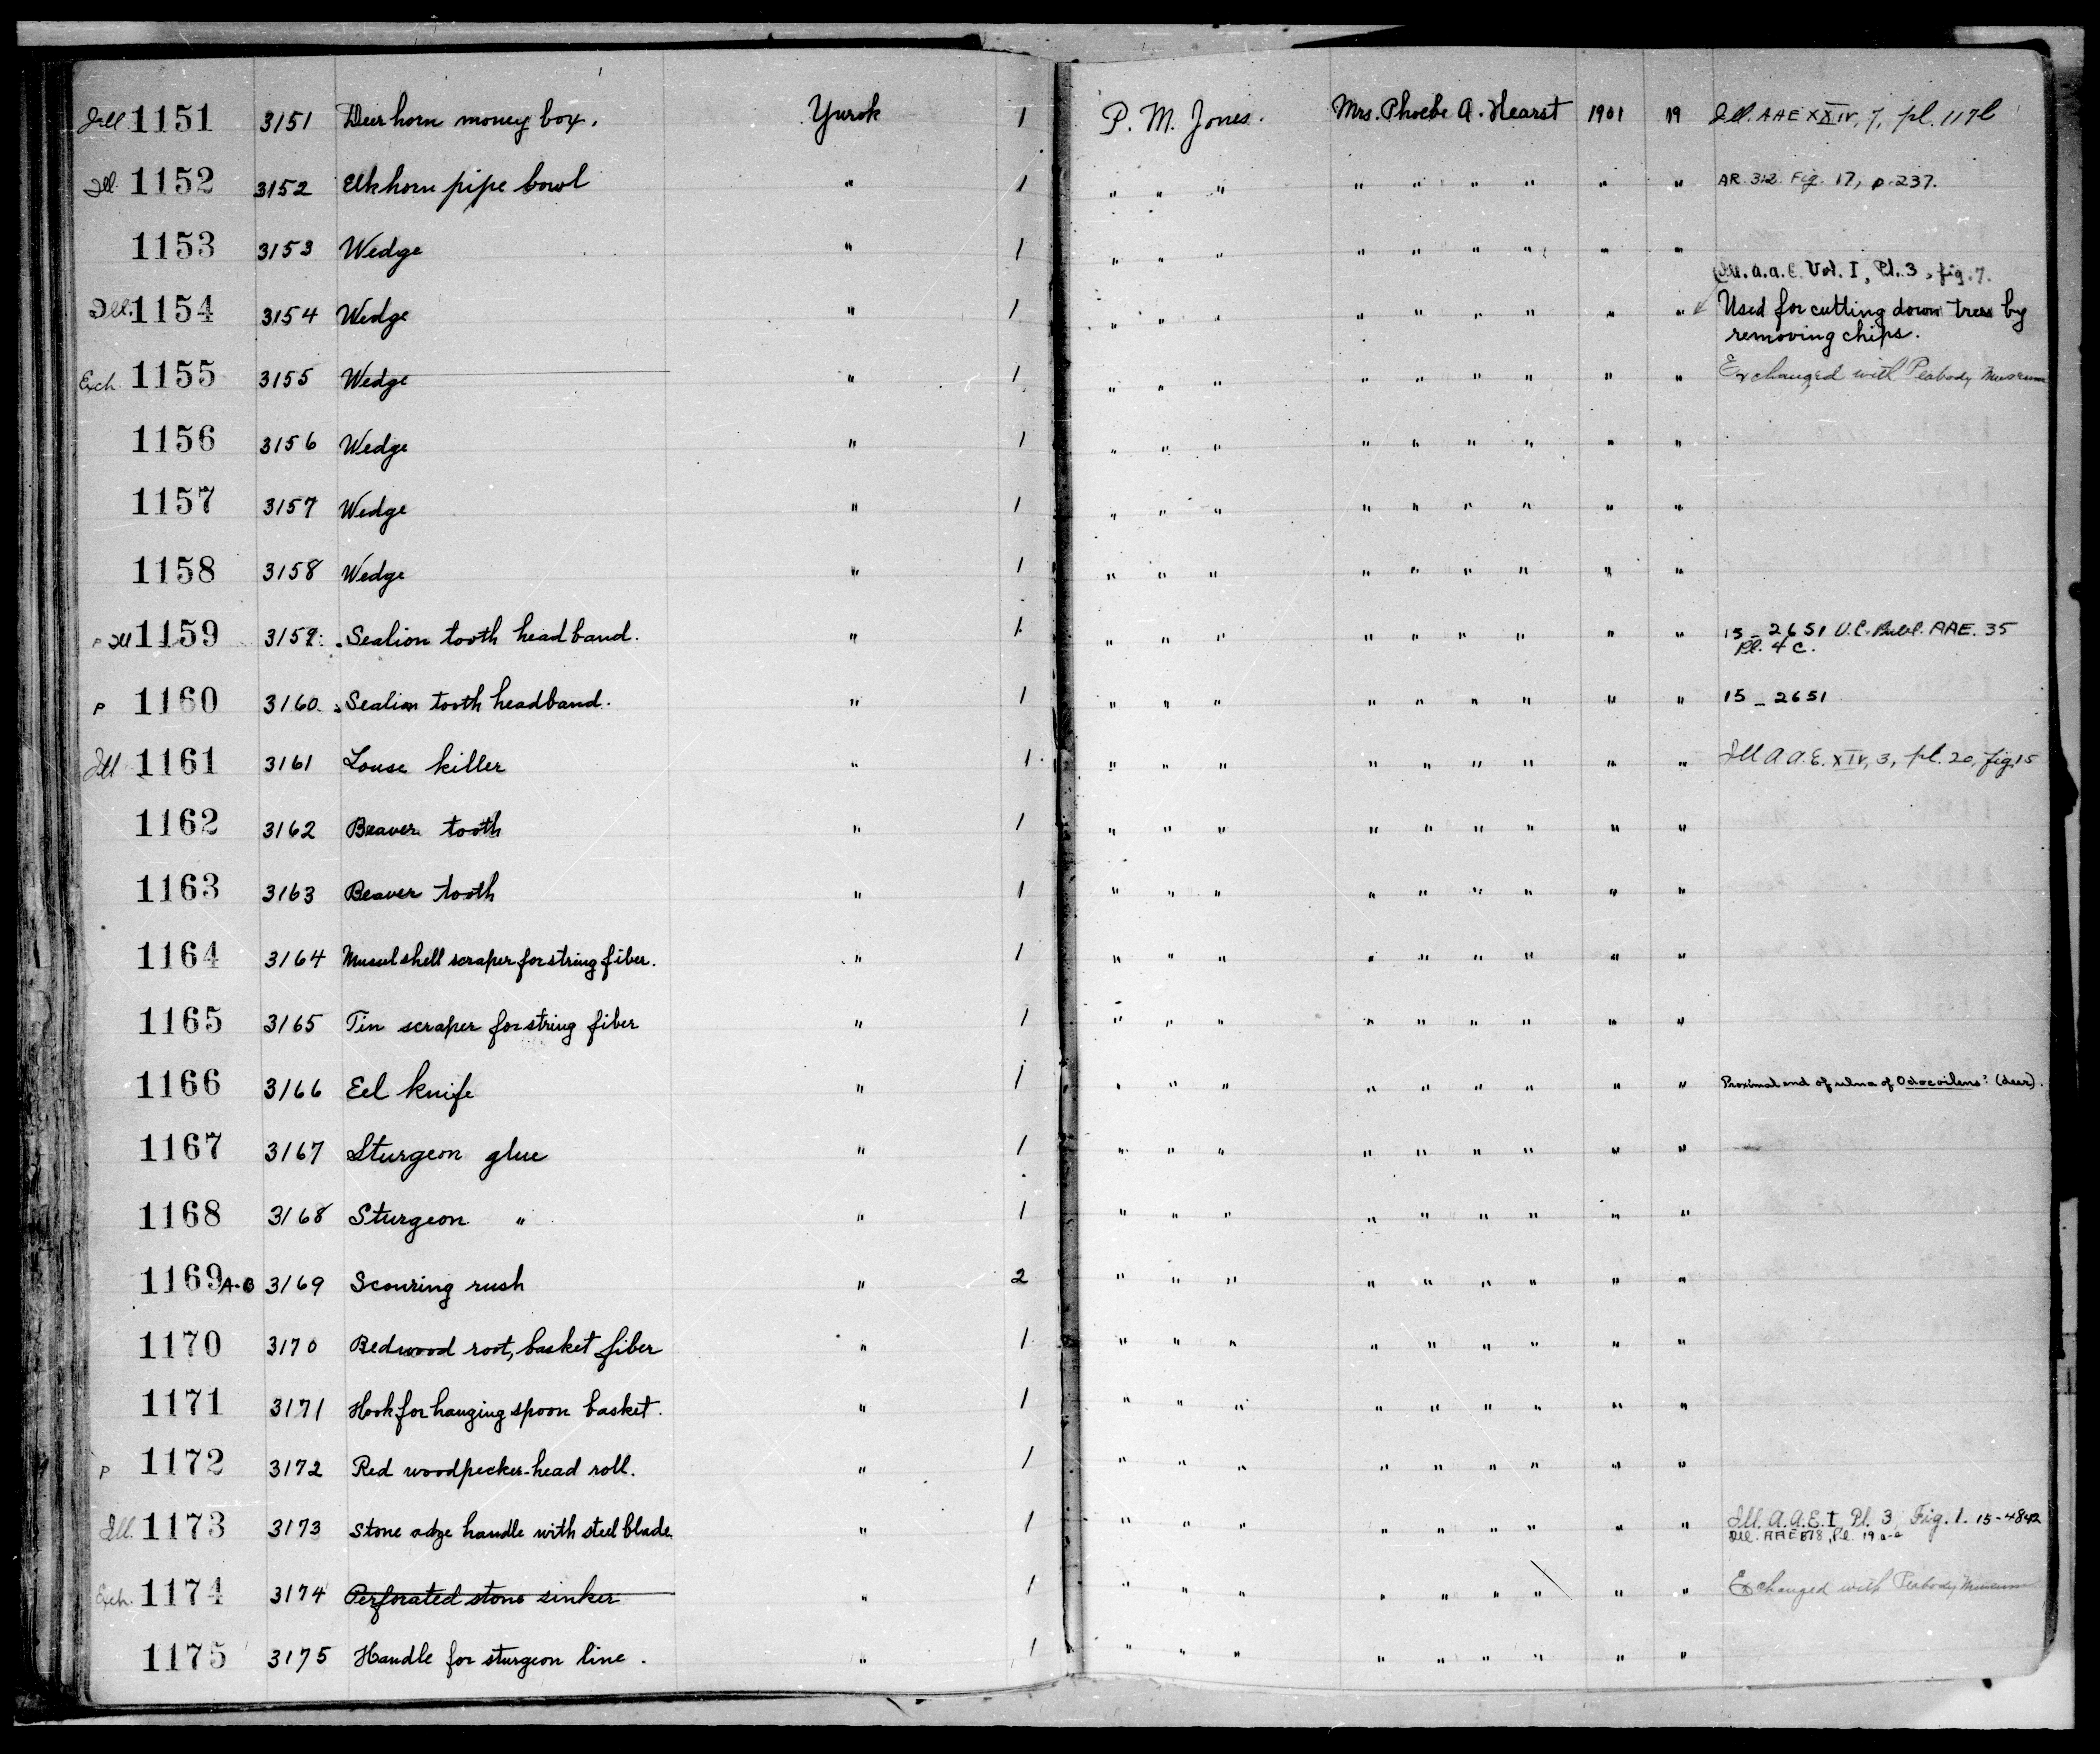 Ill 1151 3151 Deerhorn money box. Yurok 1 P. M. Jones. Mrs. Phoebe A. Hearst 1901 19 Ill. AAE XXIV, 7, pl. 117b
Ill. 1152 3152 Elkhorn pipe bowl " 1 " " " " " " " " " AR. 312. Fig. 17, p. 237.
1153 3153 Wedge " 1 " " " " " " " " "
Ill. A.A.E. Vol. I, Pl. 3, fig. 7.
Ill. 1154 3154 Wedge " 1 " " " " " " " " " Used for cutting down trees by
removing chips.
Exch 1155 3155 Wedge " 1 " " " " " " " " " Exchanged with Peabody Museum
1156 3156 Wedge " 1 " " " " " " " " "
1157 3157 Wedge " 1 " " " " " " " " "
1158 3158 Wedge " 1 " " " " " " " " "
P Ill 1159 3159. Sealion tooth headband. " 1 " " " " " " " " " 15_2651 U.C. Publ. AAE. 35
Pl. 4 C.
P 1160 3160. Sealion tooth headband. " 1 " " " " " " " " " 15_2651
Ill 1161 3161 Louse killer " 1 " " " " " " " " " Ill A.A.E. XIV, 3, pl. 20, fig 15
1162 3162 Beaver tooth " 1 " " " " " " " " "
1163 3163 Beaver tooth " 1 " " " " " " " " "
1164 3164 Mussel shell scraper for string fiber. " 1 " " " " " " " " "
1165 3165 Tin scraper for string fiber " 1 " " " " " " " " "
1166 3166 Eel knife " 1 " " " " " " " " " Proximal end of ulna of Odocoileus? (deer).
1167 3167 Sturgeon glue " 1 " " " " " " " " "
1168 3168 Sturgeon " " 1 " " " " " " " " "
1169 A-B 3169 Scouring rush " 2 " " " " " " " " "
1170 3170 Redwood root, basket fiber " 1 " " " " " " " " "
1171 3171 Hook for hanging spoon basket. " 1 " " " " " " " " "
P 1172 3172 Red woodpecker-head roll. " 1 " " " " " " " " "
Ill. 1173 3173 Stone adze handle with steel blade " 1 " " " " " " " " " Ill. A.A.E. I, Pl. 3, Fig. 1. 15-4842
Ill. AAE Pl. 19
Exch. 1174 3174 Perforated stone sinker " 1 " " " " " " " " " Exchanged with Peabody Museum
1175 3175 Handle for sturgeon line. " 1 " " " " " " " " "